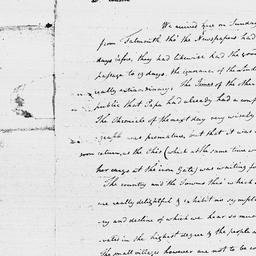 We arrived here on Sunday
from Falmouth tho' the Newspapers had
days before, they had likewise had the good
passage to 19 days. the ignorance of the Lond
really extraordinary. The Times of the other
publick that Papa had already had a conf
The Chronicle of the next day very wisely
graph was premature, but that it was
soon return, as the Ohio (which at the same time w
her cargo at the iron Gate) was waiting for
The country and the Towns thro' which
are really delightful & exhibit no symptom
ry and decline of which we hear so much
vated in the highest degree & the people
The small villages however are not to be co